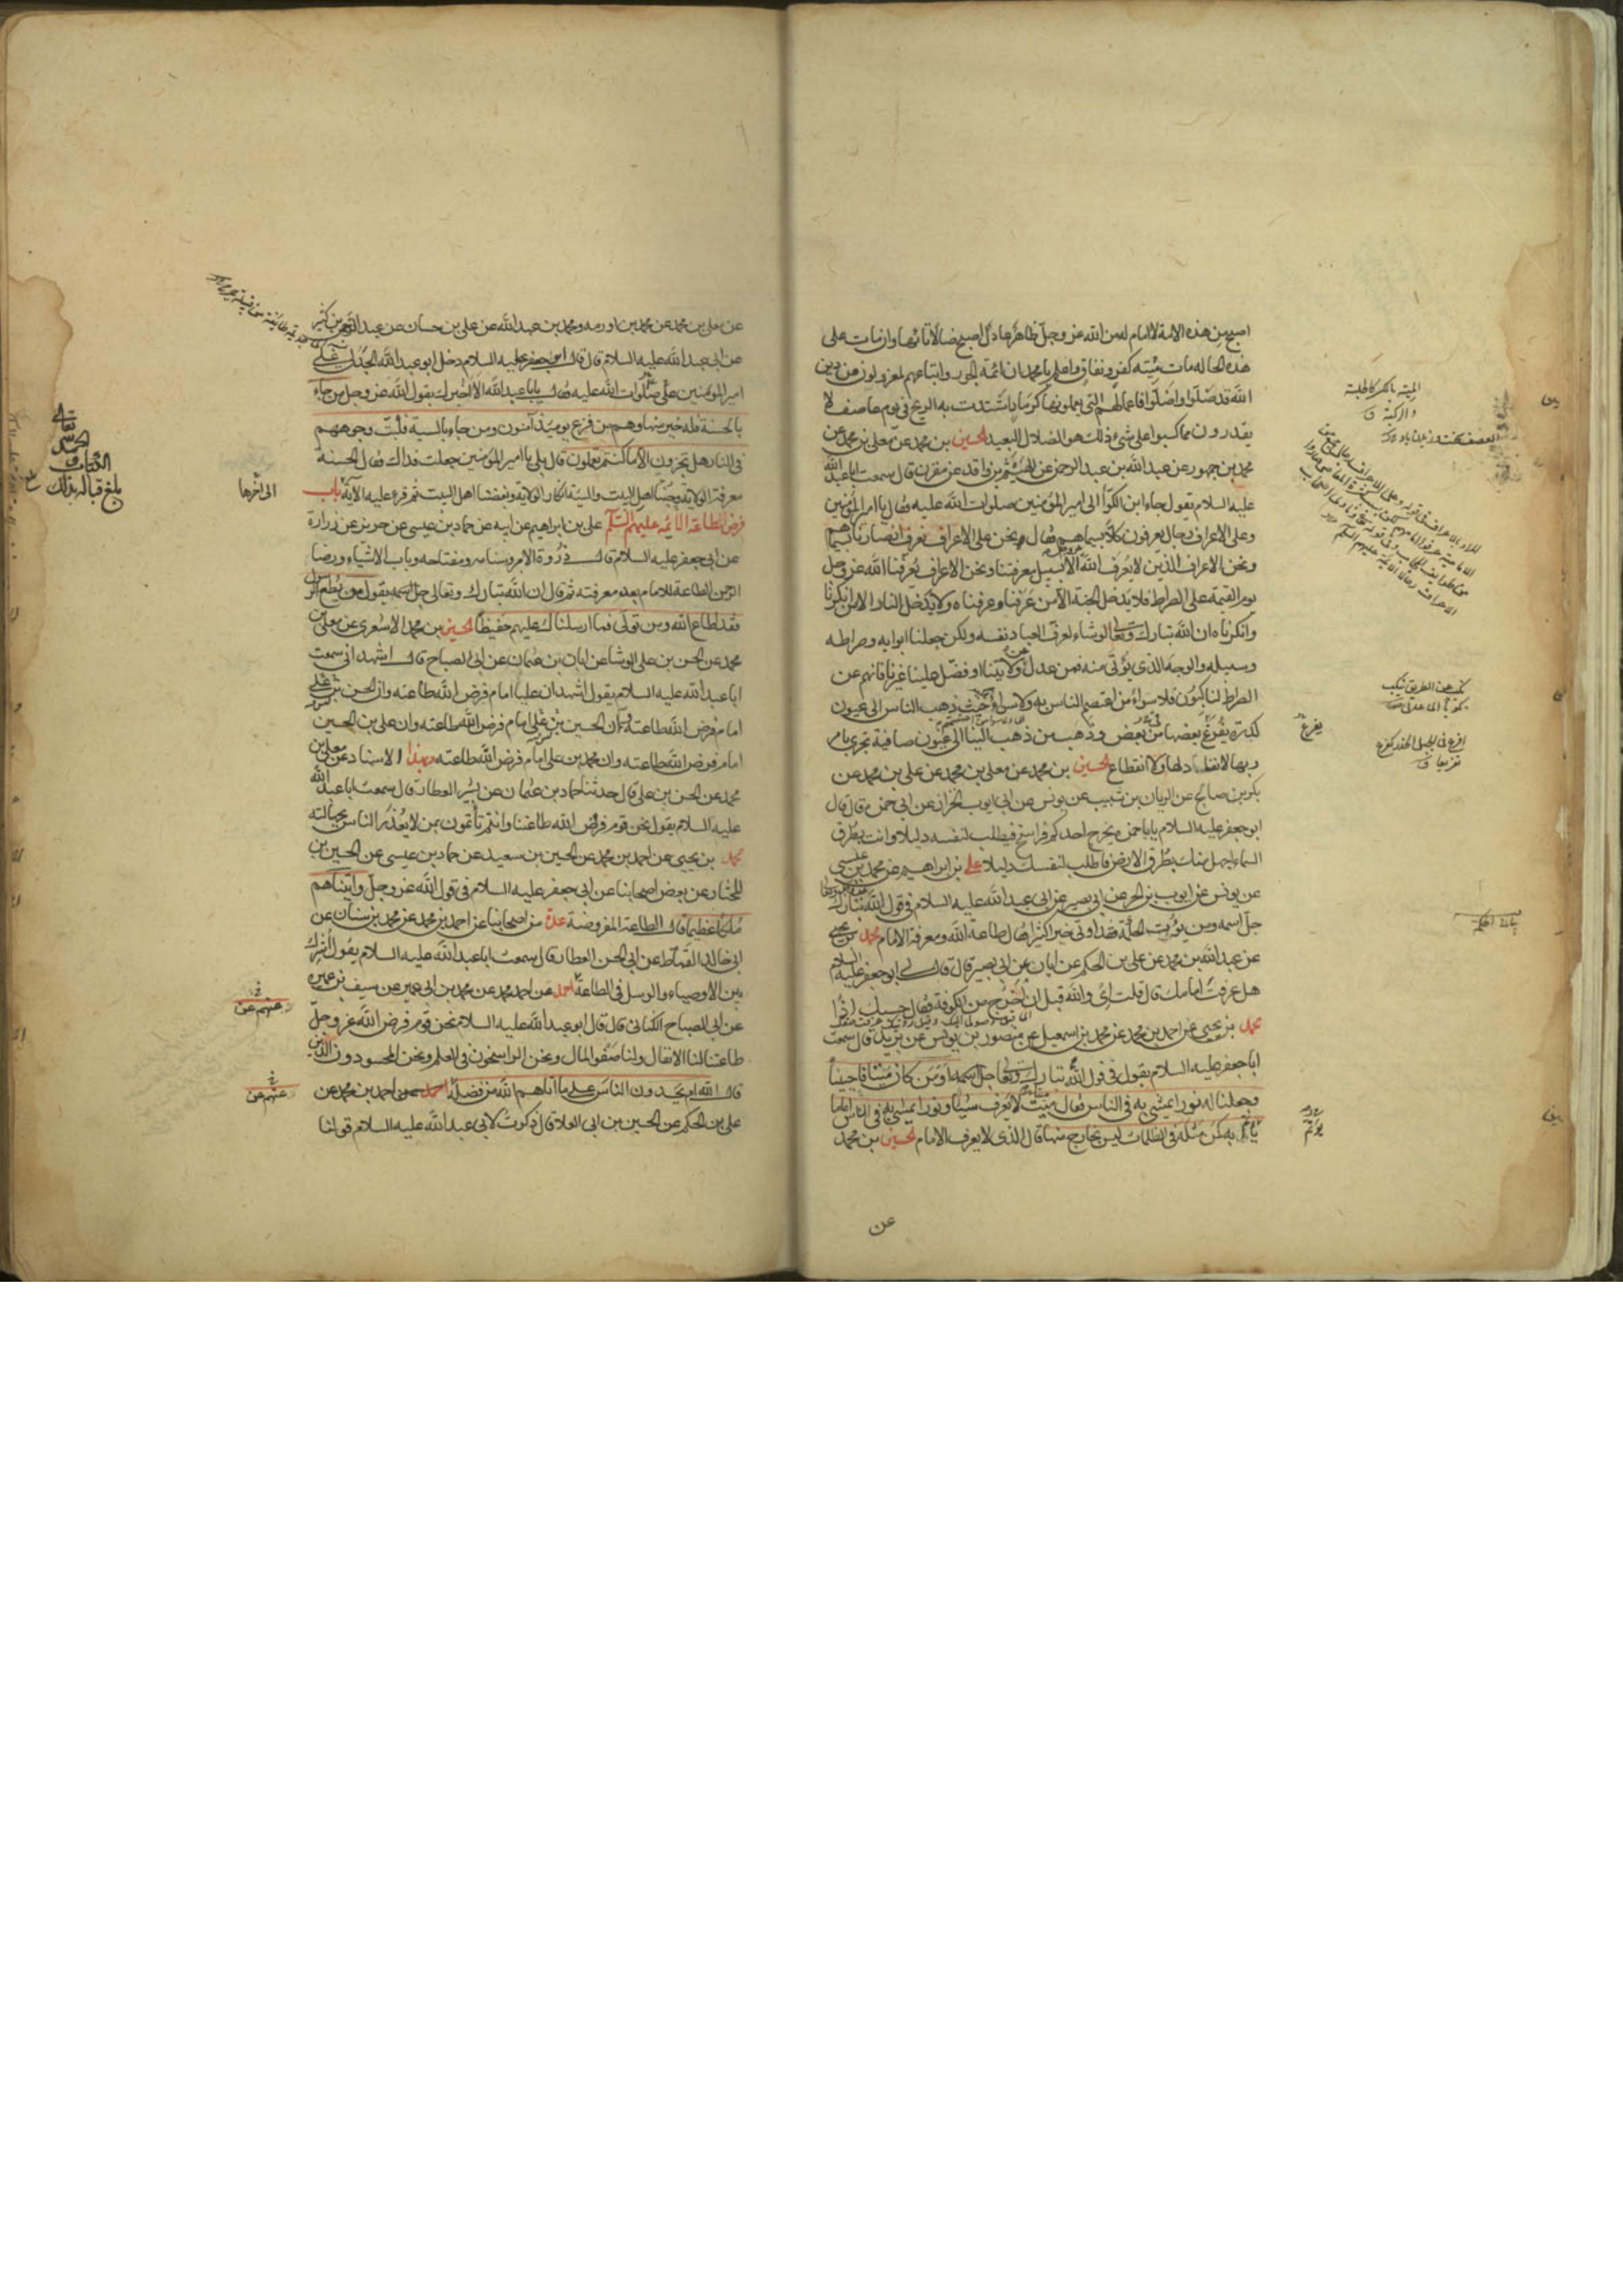 اصبح من هذه الامة لا امام له من الله عز وجل ظاهرا عادلا اصبح ضالا تائها وان مات على
هذه الحالة مات ميتة كفر ونفاق واعلم يا محمد ان ائمة الجور واتباعهم لمعزولون عن دين
الله قد ضلوا واضلوا فاعمالهم التي يعملونها كرماد اشتدت به الريح في يوم عاصف لا
يقدرون مما كسبوا على شئ ذلك هو الضلال البعيد الحسين بن محمد عن معلى بن محمد عن
محمد بن جمهور عن عبد الله بن عبد الرحمن عن الهيثم بن واقد عن مقرن قال سمعت ابا عبد الله
عليه السلام يقول جاء ابن الكوا الى امير المؤمنين صلوات الله عليه فقال يا امير المؤمنين
وعلى الاعراف رجال يعرفون كلا بسيماهم فقال نحن على الاعراف نعرف انصارنا بسيماهم
ونحن الاعراف الذين لا يعرف الله الا بسبيل معرفتنا ونحن الاعراف يعرفنا الله عز وجل
يوم القيمة على الصراط فلا يدخل الجنة الا من عرفنا وعرفناه ولا يدخل النار الا من انكرنا
وانكرناه ان الله تبارك وتعالى لو شاء لعرف العباد نفسه ولكن جعلنا ابوابه وصراطه
وسبيله والوجه الذي يؤتى منه فمن عدل عن ولايتنا او فضل علينا غيرنا فانهم عن
الصراط لناكبون فلا سواء من اعتصم الناس به ولا سواء حيث ذهب الناس الى عيون
كدرة يفرغ بعضها من بعض وذهب من ذهب الينا الى عيون صافية تجري بامر
ربها لا نفاد لها ولا انقطاع الحسين بن محمد عن معلى بن محمد عن علي بن محمد عن
بكر بن صالح عن الريان بن شبيب عن يونس عن ابي ايوب الخزاز عن ابي حمزة قال قال
ابو جعفر عليه السلام يا با حمزة يخرج احدكم فراسخ فيطلب لنفسه دليلا وانت بطرق
السماء اجهل منك بطرق الارض فاطلب لنفسك دليلا علي بن ابراهيم عن محمد بن عيسى
عن يونس عن ايوب بن الحر عن ابي بصير عن ابي عبد الله عليه السلام في قول الله تبارك
جل اسمه ومن يؤت الحكمة فقد اوتي خيرا كثيرا فقال طاعة الله ومعرفة الامام محمد بن يحيى
عن عبد الله بن محمد عن علي بن الحكم عن ابان عن ابي بصير قال قال لي ابو جعفر عليه السلام
هل عرفت امامك قال قلت اي والله قبل ان اخرج من الكوفة فقال حسبك اذا
محمد بن يحيى عن احمد بن محمد عن محمد بن اسمعيل عن منصور بن يونس عن بريد قال سمعت
ابا جعفر عليه السلام يقول في قول الله تبارك وتعالى جل اسمه او من كان ميتا فاحييناه
وجعلنا له نورا يمشي به في الناس فقال ميت لا يعرف شيئا ونورا يمشي به في الناس اماما
يأتم به كمن مثله في الظلمات ليس بخارج منها قال الذي لا يعرف الامام الحسين بن محمد
عن
الميتة بالكسر كالجلسة
والركبة ق
يفرغ
يؤتم
عن معلى بن محمد عن محمد بن اورمه ومحمد بن عبد الله عن علي بن حسان عن عبد الرحمن بن كثير
عن ابي عبد الله عليه السلام قال قال ابو جعفر عليه السلام دخل ابو عبد الله الجدلي على
امير المؤمنين علي صلوات الله عليه فقال يا با عبد الله الا اخبرك بقول الله عز وجل من جاء
بالحسنة فله خير منها وهم من فزع يومئذ آمنون ومن جاء بالسيئة فكبت وجوههم
في النار هل تجزون الا ما كنتم تعملون قال بلى يا امير المؤمنين جعلت فداك فقال الحسنة
معرفة الولاية وحبنا اهل البيت والسيئة انكار الولاية وبغضنا اهل البيت ثم قرء عليه الاية باب
فرض طاعة الائمة عليهم السلام علي بن ابراهيم عن ابيه عن حماد بن عيسى عن حريز عن زرارة
عن ابي جعفر عليه السلام قال ذروة الامر وسنامه ومفتاحه وباب الاشياء ورضا
الرحمن الطاعة للامام بعد معرفته ثم قال ان الله تبارك وتعالى جل اسمه يقول من يطع الرسول
فقد اطاع الله ومن تولى فما ارسلناك عليهم حفيظا الحسين بن محمد الاشعري عن معلى بن
محمد عن الحسن بن علي الوشا عن ابان بن عثمان عن ابي الصباح قال اشهد اني سمعت
ابا عبد الله عليه السلام يقول اشهد ان عليا امام فرض الله طاعته وان الحسن بن علي
امام فرض الله طاعته وان الحسين بن علي امام فرض الله طاعته وان علي بن الحسين
امام فرض الله طاعته وان محمد بن علي امام فرض الله طاعته وبهذا الاسناد عن معلى بن
محمد عن الحسن بن علي قال حدثنا حماد بن عثمان عن بشير العطار قال سمعت ابا عبد الله
عليه السلام يقول نحن قوم فرض الله طاعتنا وانتم تأتمون بمن لا يعذر الناس بجهالته
محمد بن يحيى عن احمد بن محمد عن الحسين بن سعيد عن حماد بن عيسى عن الحسين بن
المختار عن بعض اصحابنا عن ابي جعفر عليه السلام في قول الله عز وجل وآتيناهم
ملكا عظيما قال الطاعة المفروضة عدة من اصحابنا عن احمد بن محمد عن محمد بن سنان عن
ابي خالد القماط عن ابي الحسن العطار قال سمعت ابا عبد الله عليه السلام يقول اشرك
بين الاوصياء والرسل في الطاعة احمد بن محمد عن محمد بن ابي عمير عن سيف بن عميرة
عن ابي الصباح الكناني قال قال ابو عبد الله عليه السلام نحن قوم فرض الله عز وجل
طاعتنا لنا الانفال ولنا صفو المال ونحن الراسخون في العلم ونحن المحسودون الذين
قال الله ام يحسدون الناس على ما آتاهم الله من فضله احمد بن محمد عن
علي بن الحكم عن الحسين بن ابي العلا قال ذكرت لابي عبد الله عليه السلام قولنا
الى آخرها
بلغ قباله